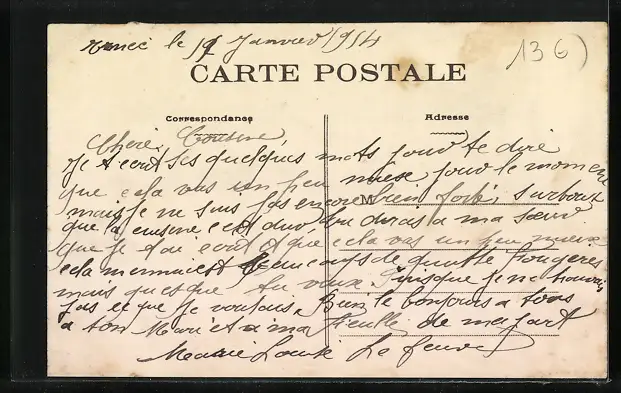 le 19 Janvier 1914
136)
CARTE POSTALE
Correspondance
Adresse
Chère Cousine
Je t ecrit ses quelques mots pour te dire
que cela vas un peu mieux pour le moment
mais je ne suis pas encore bien forte surtout
que la cuisine c est dur tu diras a ma sœur
que je lui ecrit et que cela vas un peu mieux
cela mennuiest beaucoups de quitte Fougeres
mais quesque tu veux puisque je ne trouvais
pas ce que je voulais Bien le bonjours a tous
a ton Mari et a ma Fieulle de ma part
Marie Louise Le feuvre